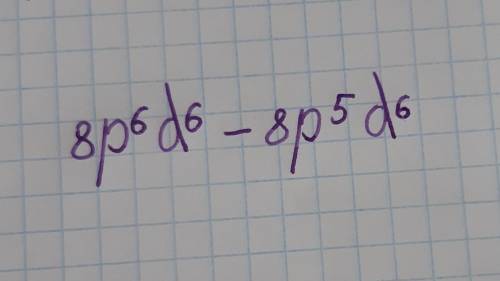 8p⁶d⁶ - 8p⁵d⁶